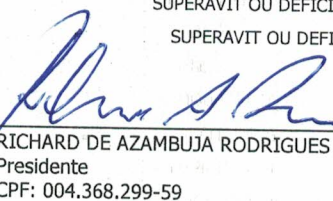 SUPERAVIT OU DEFICI
SUPERAVIT OU DEFI
RICHARD DE AZAMBUJA RODRIGUES
Presidente
CPF: 004.368.299-59